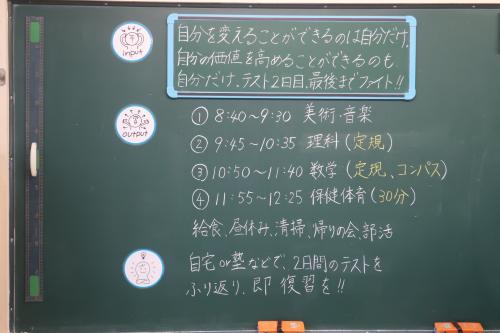 input
自分を変えることができるのは自分だけ。
自分の価値を高めることができるのも、
自分だけ。テスト2日目、最後までファイト!!
output
① 8:40～9:30 美術・音楽
② 9:45～10:35 理科(定規)
③ 10:50～11:40 数学(定規、コンパス)
④ 11:55～12:25 保健体育(30分)
給食、昼休み、清掃、帰りの会、部活
自宅or塾などで、2日間のテストを
ふり返り、即 復習を!!